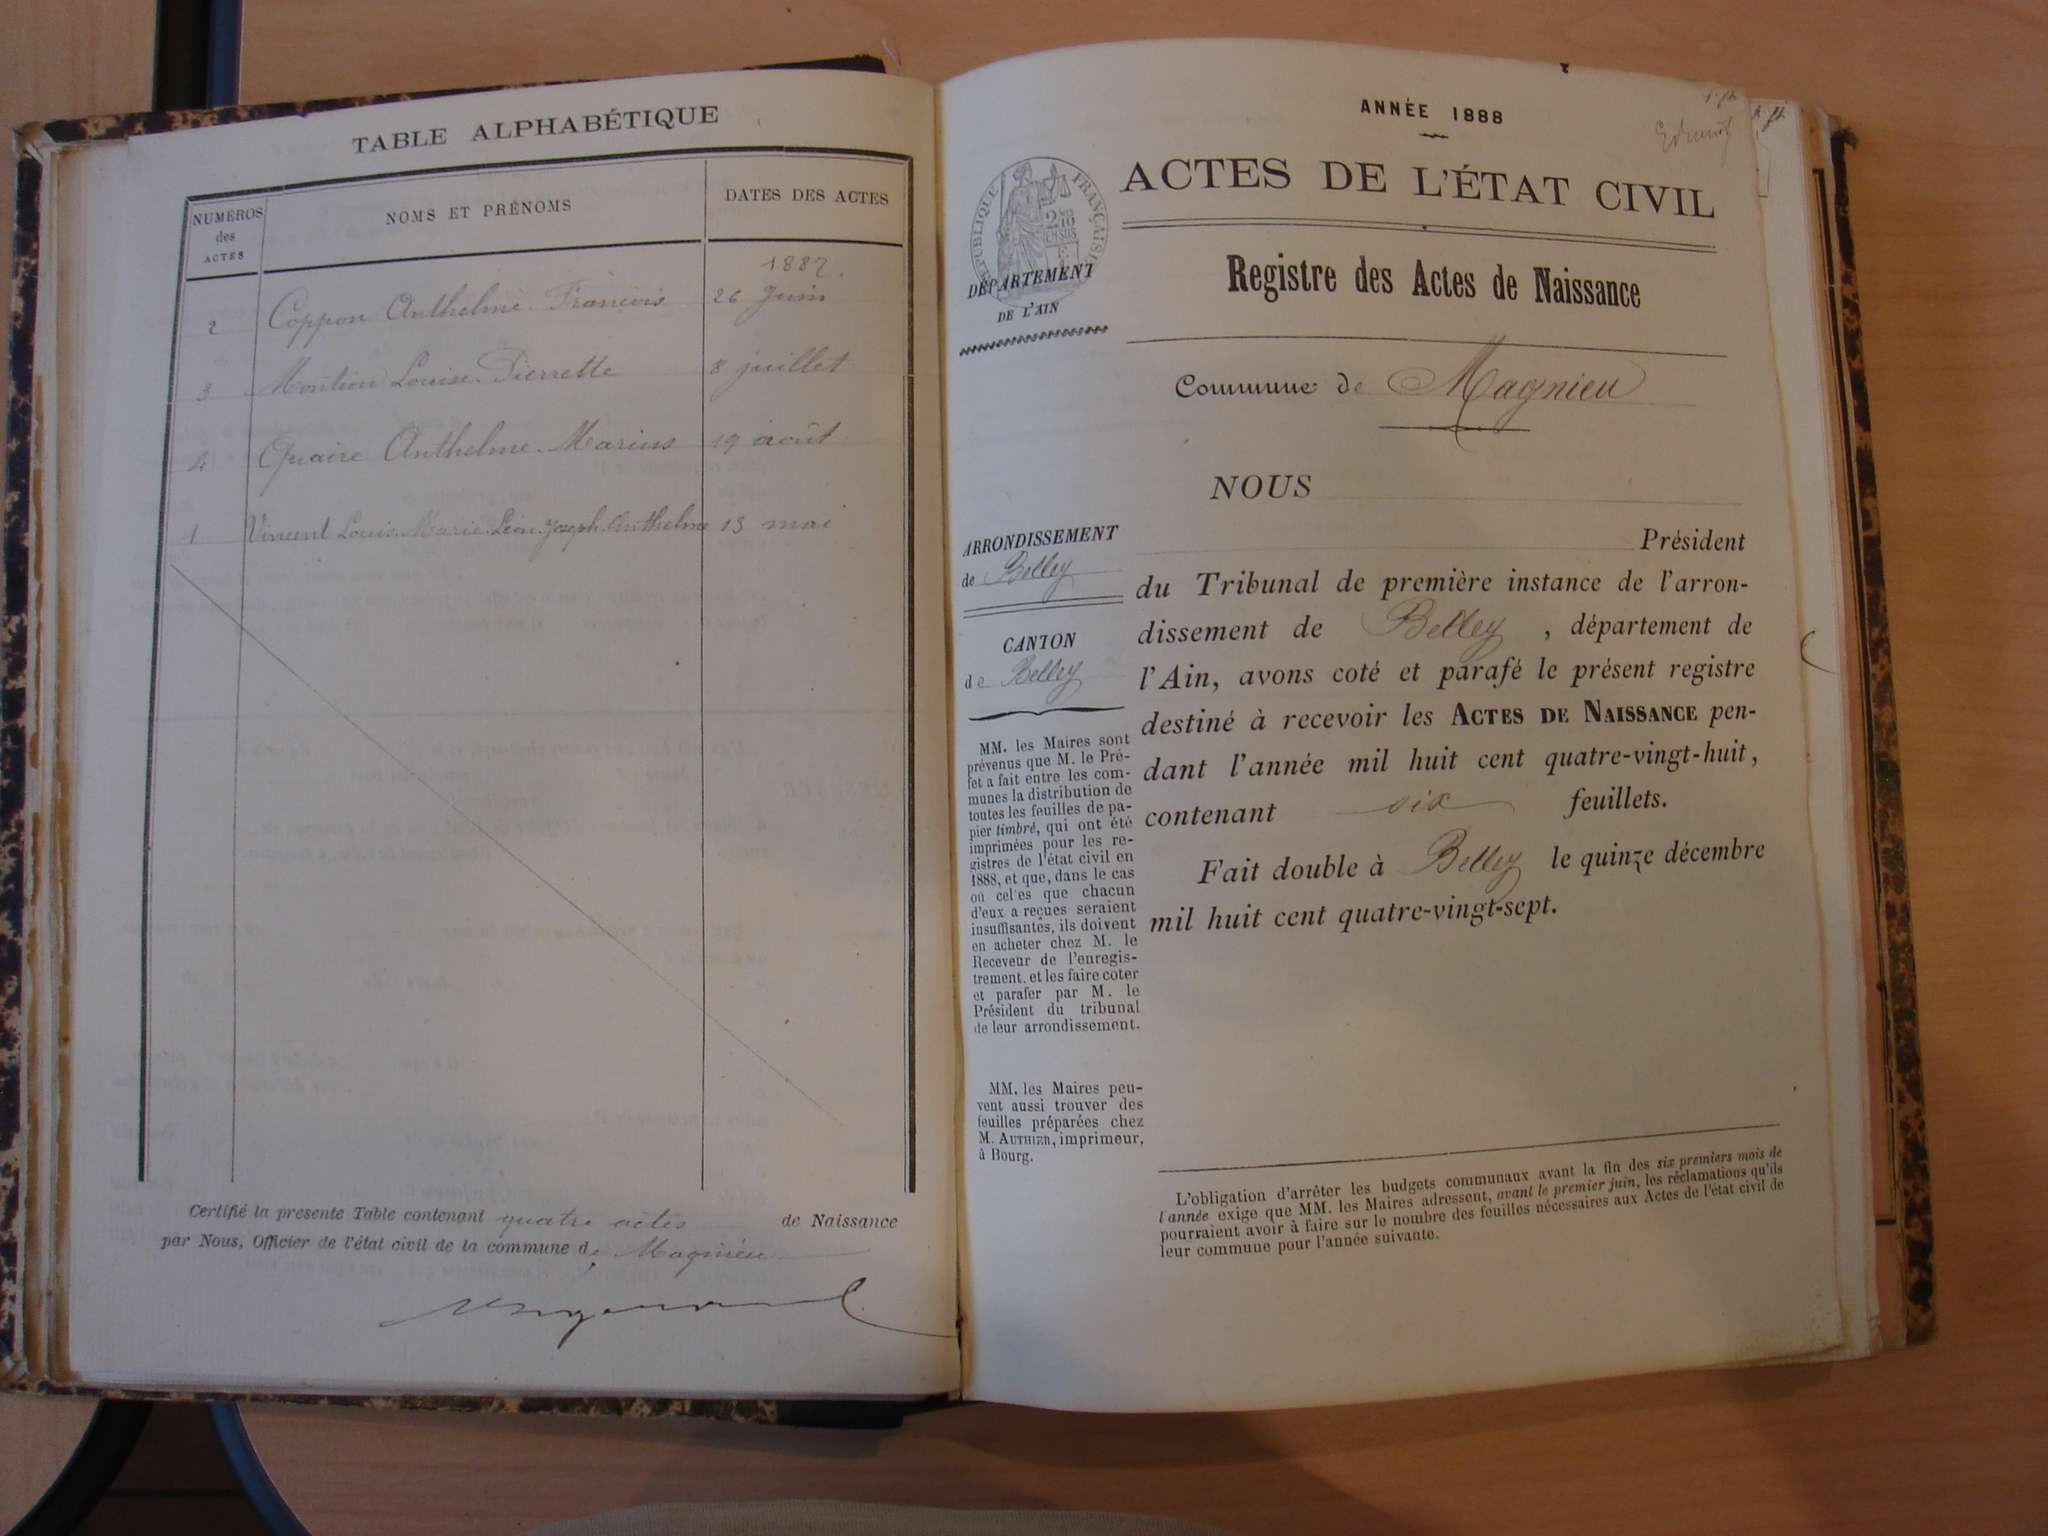 TABLE ALPHABÉTIQUE
NUMÉROS
des
ACTES
NOMS ET PRÉNOMS
DATES DES ACTES
1887.
2 Coppon Anthelme François 26 Juin
3 Montion Louise Pierrette 8 juillet
4 Quaire Anthelme Marius 19 août
1 Vincent Louis Marie Léon Joseph Anthelme 13 mai
Certifié la présente Table contenant quatre actes de Naissance
par Nous, Officier de l'état civil de la commune de Magnieu
ANNÉE 1888
ACTES DE L'ÉTAT CIVIL
RÉPUBLIQUE FRANÇAISE
DÉPARTEMENT
DE L'AIN
Registre des Actes de Naissance
Commune de Magnieu
NOUS
Président
du Tribunal de première instance de l'arron-
dissement de Belley, département de
l'Ain, avons coté et parafé le présent registre
destiné à recevoir les ACTES DE NAISSANCE pen-
dant l'année mil huit cent quatre-vingt-huit,
contenant six feuillets.
Fait double à Belley le quinze décembre
mil huit cent quatre-vingt-sept.
ARRONDISSEMENT
de Belley
CANTON
de Belley
MM. les Maires sont
prévenus que M. le Pré-
fet a fait entre les com-
munes la distribution de
toutes les feuilles de pa-
pier timbré, qui ont été
imprimées pour les re-
gistres de l'état civil en
1888, et que, dans le cas
où celles que chacun
d'eux a reçues seraient
insuffisantes, ils doivent
en acheter chez M. le
Receveur de l'enregis-
trement, et les faire coter
et parafer par M. le
Président du tribunal
de leur arrondissement.
MM. les Maires peu-
vent aussi trouver des
feuilles préparées chez
M. AUTHIER, imprimeur,
à Bourg.
L'obligation d'arrêter les budgets communaux avant la fin des six premiers mois de
l'année exige que MM. les Maires adressent, avant le premier juin, les réclamations qu'ils
pourraient avoir à faire sur le nombre des feuilles nécessaires aux Actes de l'état civil de
leur commune pour l'année suivante.